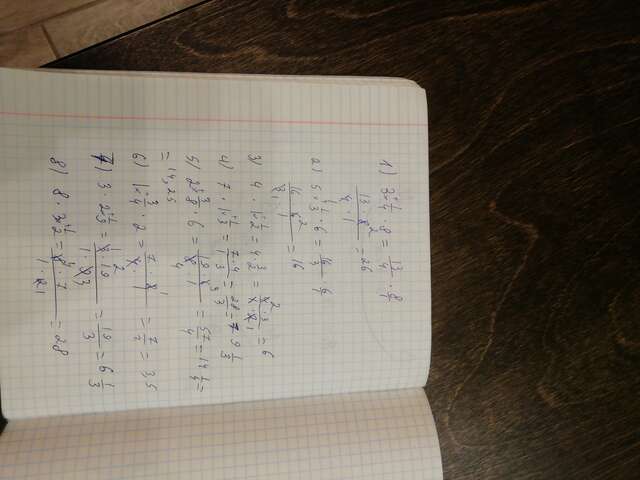 1) 3 1/4 · 8 = 13/4 · 8/1
13 · 8 2 / 4 · 1 = 26
2) 5 1/3 · 6 = 16/3 · 6/1
16 · 6 / 3 · 1 = 16
3) 4 · 1 1/2 = 4 · 3/2 = 4 · 3 / 1 · 2 = 6
4) 7 · 1 1/3 = 7 · 4 / 1 · 3 = 28/3 = 9 1/3
5) 2 3/8 · 6 = 19 · 6 3 / 8 4 · 1 = 57/4 = 14 1/4 =
= 14,25
6) 1 3/4 · 2 = 7 · 2 1 / 4 2 · 1 = 7/2 = 3,5
7) 3 · 2 1/9 = 3 1 · 19 / 1 · 9 3 = 19/3 = 6 1/3
8) 8 · 3 1/2 = 8 4 · 7 / 1 · 2 1 = 28